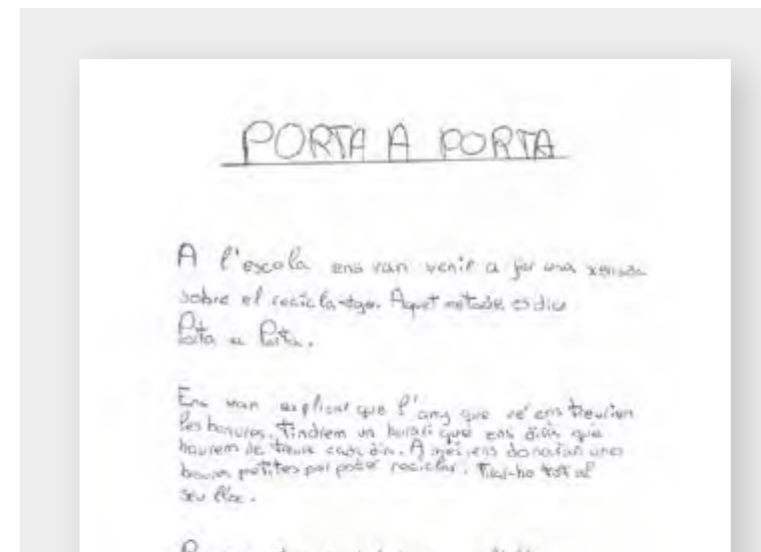 PORTA A PORTA
A l'escola ens van venir a fer una xerrada
sobre el reciclatge. Aquet metode es diu
Porta a Porta.
Ens van explicar que l'any que ve ens treurien
les basures. Tindrem un horari que ens dirà que
haurem de treure cada dia. A més ens donaran unes
petites per poder reciclar. Tirar-ho tot al
seu lloc.